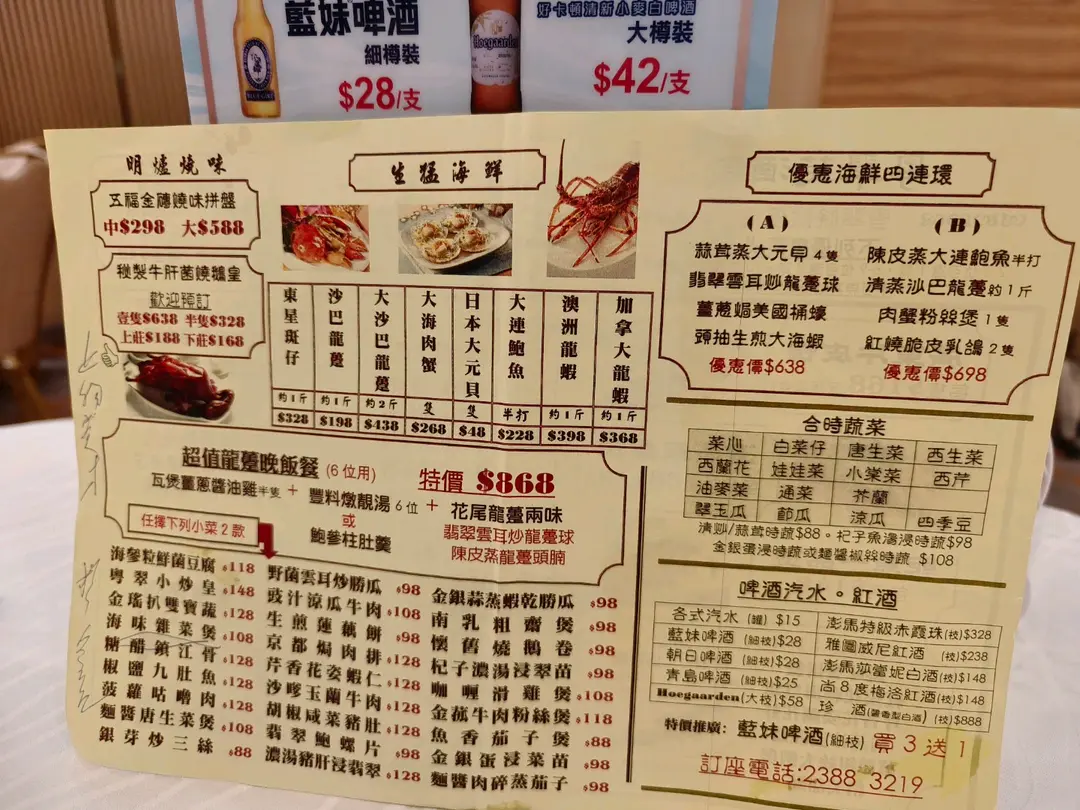 藍妹啤酒
細樽裝
$28/支
好卡頓清新小麥白啤酒
大樽裝
$42/支
Hoegaarden
明爐燒味
五福金磚燒味拼盤
中$298 大$588
秘製牛肝菌燒鵝皇
歡迎預訂
壹隻$638 半隻$328
上莊$188 下莊$168
生猛海鮮
東星斑仔 約1斤 $328
沙巴龍躉 約1斤 $198
大沙巴龍躉 約2斤 $438
大海肉蟹 隻 $268
日本大元貝 隻 $48
大連鮑魚 半打 $228
澳洲龍蝦 約1斤 $398
加拿大龍蝦 約1斤 $368
優惠海鮮四連環
(A)
蒜茸蒸大元貝4隻
翡翠雲耳炒龍躉球
薑蔥焗美國桶蠔
頭抽生煎大海蝦
優惠價$638
(B)
陳皮蒸大連鮑魚半打
清蒸沙巴龍躉約1斤
肉蟹粉絲煲1隻
紅燒脆皮乳鴿2隻
優惠價$698
超值龍躉晚飯餐(6位用)
特價 $868
瓦煲薑蔥醬油雞半隻 + 豐料燉靚湯6位 + 花尾龍躉兩味
或
鮑參柱肚羹
翡翠雲耳炒龍躉球
陳皮蒸龍躉頭腩
任擇下列小菜2款
海參粒鮮菌豆腐 $118
粵翠小炒皇 $148
金瑤扒雙寶蔬 $128
海味雜菜煲 $108
糖醋鎮江骨 $128
椒鹽九肚魚 $128
菠蘿咕嚕肉 $128
麵醬唐生菜煲 $108
銀芽炒三絲 $88
野菌雲耳炒勝瓜 $98
豉汁涼瓜牛肉 $108
生煎蓮藕餅 $98
京都焗肉排 $128
芹香花姿蝦仁 $128
沙嗲玉蘭牛肉 $128
胡椒咸菜豬肚 $128
翡翠鮑螺片 $98
濃湯豬肝浸翡翠 $128
金銀蒜蒸蝦乾勝瓜 $98
南乳粗齋煲 $98
懷舊燒鵝卷 $98
杞子濃湯浸翠苗 $98
咖喱滑雞煲 $108
金菰牛肉粉絲煲 $118
魚香茄子煲 $88
金銀蛋浸菜苗 $98
麵醬肉碎蒸茄子 $98
合時蔬菜
菜心 白菜仔 唐生菜 西生菜
西蘭花 娃娃菜 小棠菜 西芹
油麥菜 通菜 芥蘭
翠玉瓜 節瓜 涼瓜 四季豆
清炒/蒜茸時蔬$88。杞子魚湯浸時蔬$98
金銀蛋浸時蔬或麵醬椒絲時蔬 $108
啤酒汽水。紅酒
各式汽水(罐)$15
藍妹啤酒(細枝)$28
朝日啤酒(細枝)$28
青島啤酒(細枝)$25
Hoegaarden(大枝)$58
澎馬特級赤霞珠(枝)$328
雅圖威尼紅酒(枝)$238
澎馬莎蕾妮白酒(枝)$148
尚8度梅洛紅酒(枝)$148
珍酒(醬香型白酒)(枝)$888
特價推廣:藍妹啤酒(細枝)買3送1
訂座電話:2388 3219